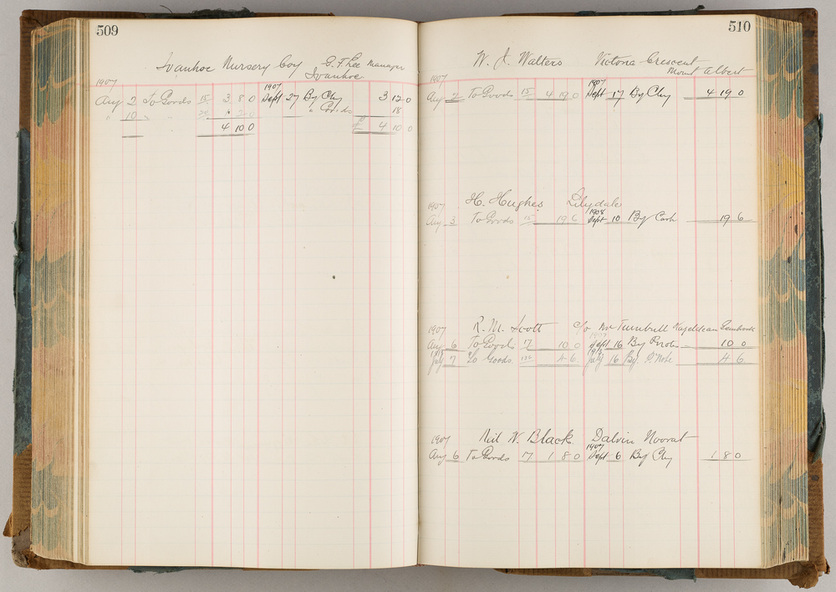 509
Ivanhoe Nursery Coy C. F. Lee Manager
Ivanhoe
1907
1907
Aug 2 To Goods 15 3 8 0 Sept 27 By Chq 3 12 0
" 10 " " 2 0 " Goods 18
4 10 0 £ 4 10 0
510
W. J. Walters Victoria Crescent
Mont Albert
1907
1907
Aug 2 To Goods 15 4 19 0 Sept 17 By Chq 4 19 0
H. Hughes Lilydale
1907
1908
Aug 3 To Goods 15 19 6 Sept 10 By Cash 19 6
1907 R. M. Scott c/o Mr Turnbull
Aug 6 To Goods 17 10 0 Sept 16 By 10 0
July 7 To Goods 4 6 July 16 By P. Note 4 6
1907 Neil W. Black Dalvin Noorat
1907
Aug 6 To Goods 17 1 8 0 Sept 6 By Chq 1 8 0